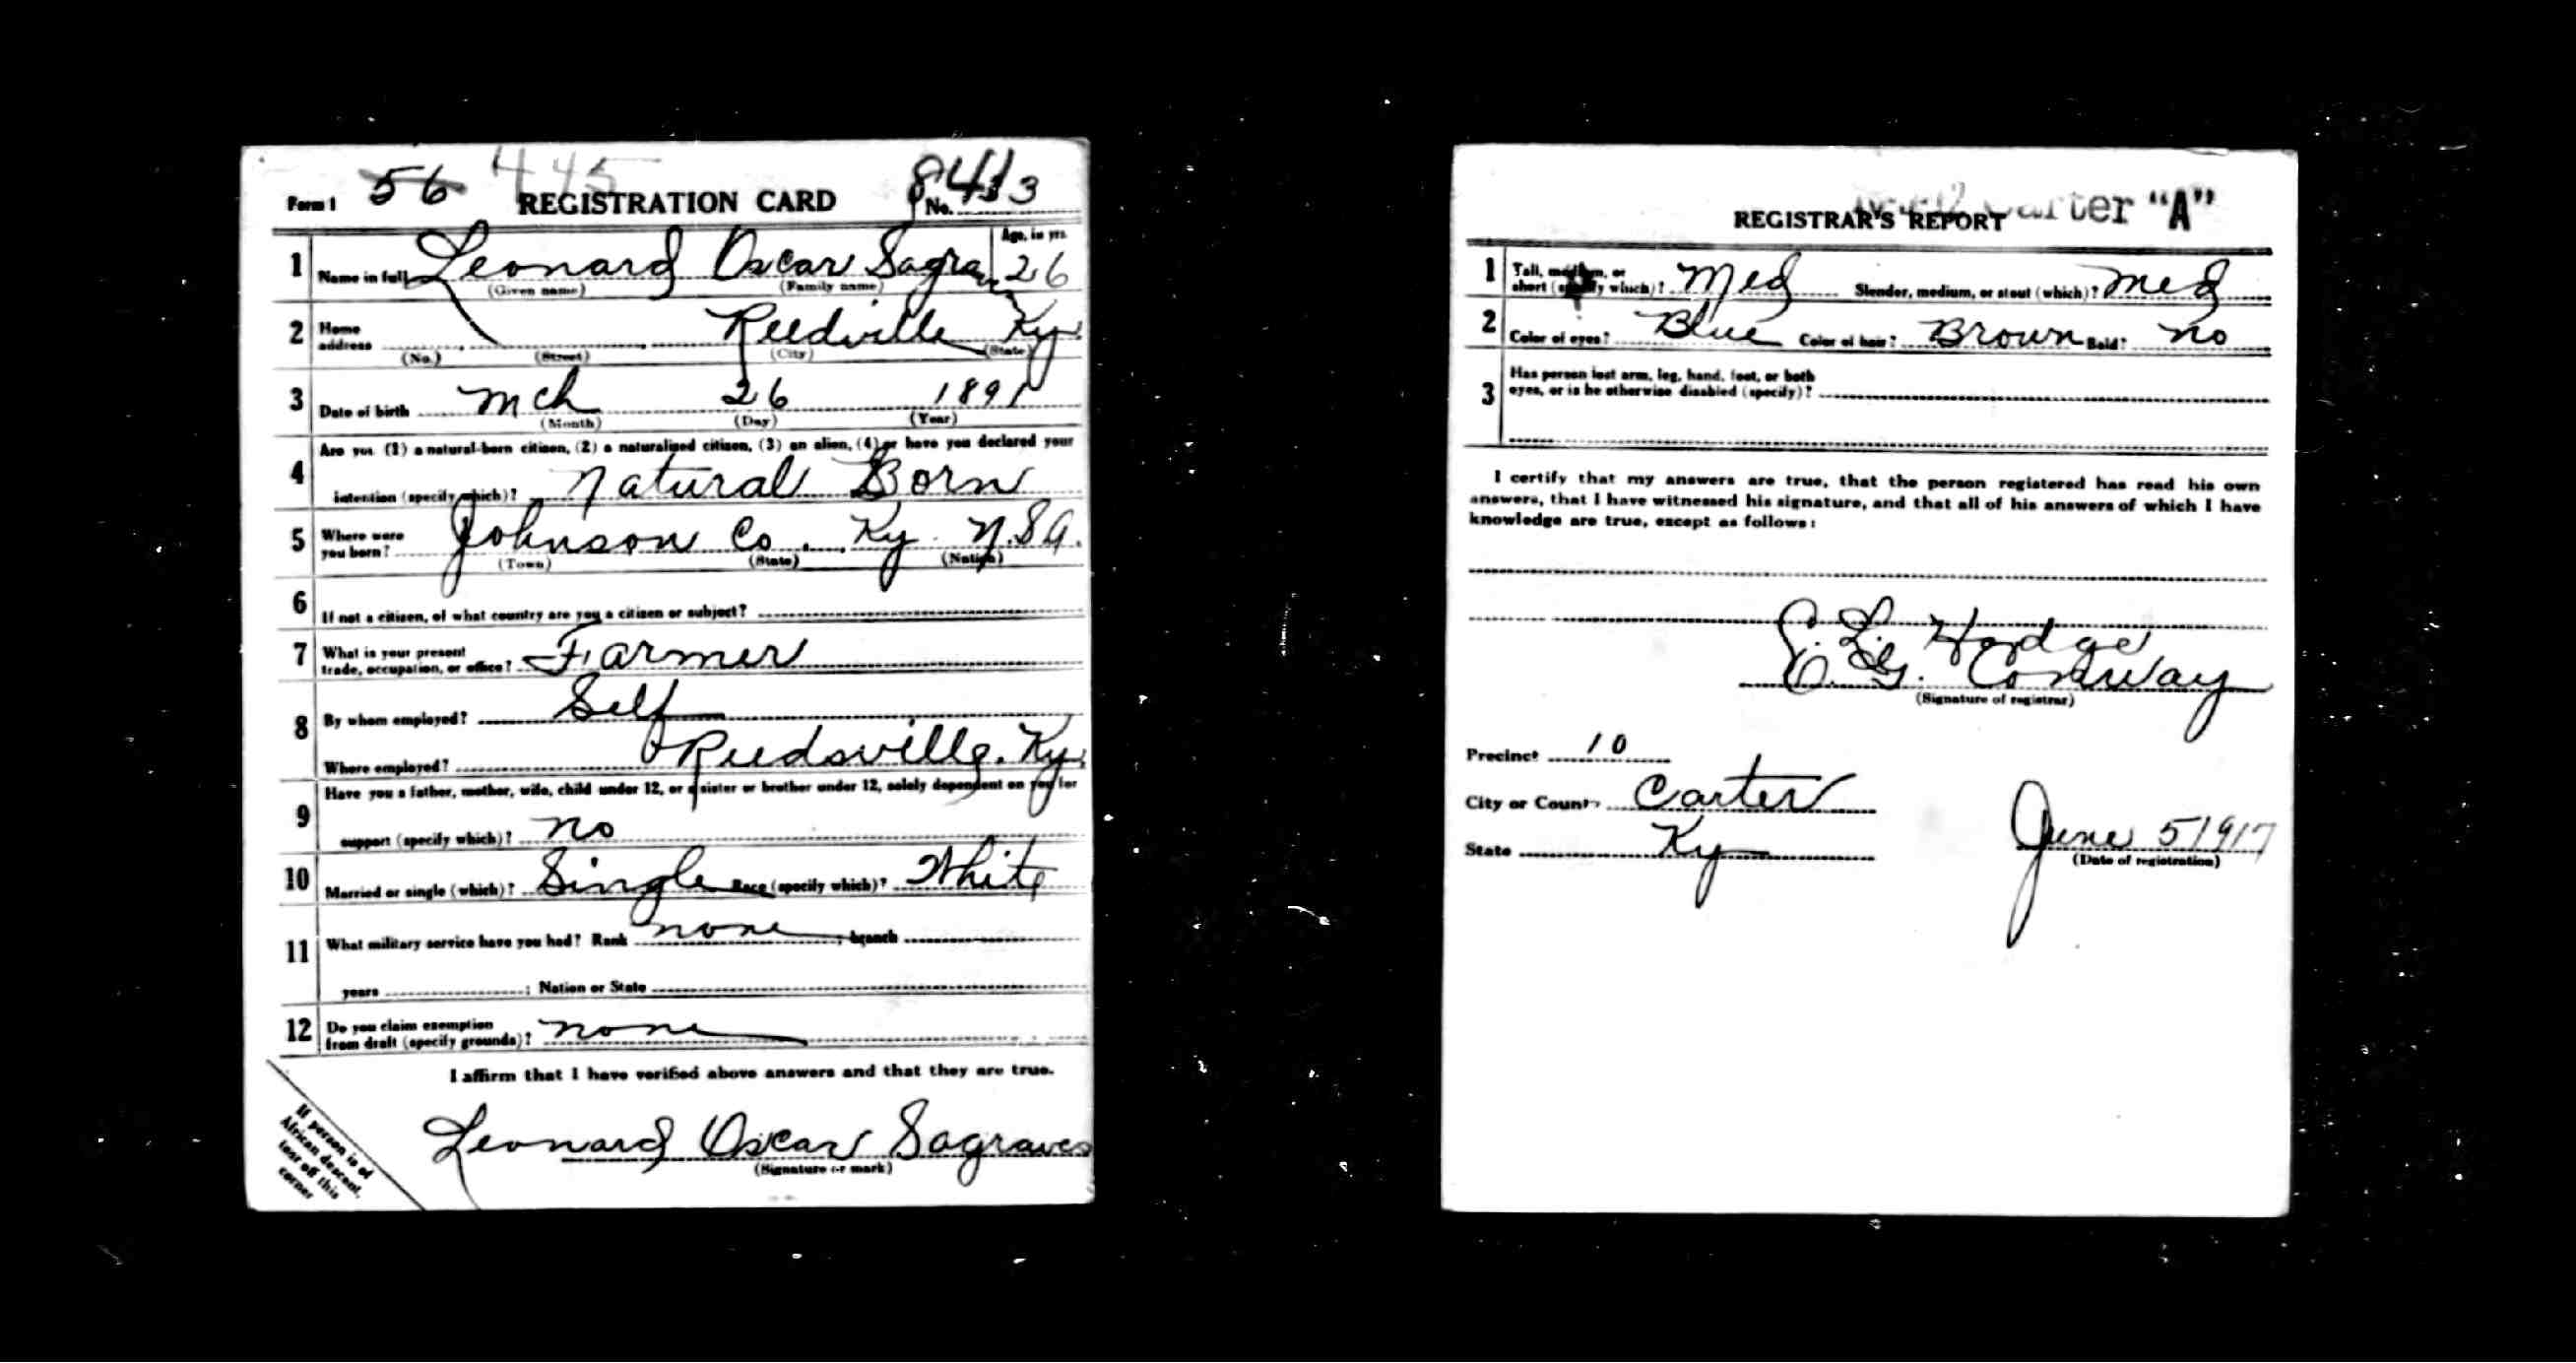 Form 1 56 445 REGISTRATION CARD No. 33 841
1 Name in full Leonard Oscar Sagra Age, in yrs. 26
(Given name) (Family name)
2 Home address Reedville Ky.
(No.) (Street) (City) (State)
3 Date of birth Mch 26 1891
(Month) (Day) (Year)
4 Are you (1) a natural-born citizen, (2) a naturalized citizen, (3) an alien, (4) or have you declared your
intention (specify which)? Natural Born
5 Where were you born? Johnson Co. Ky. U.S.A.
(Town) (State) (Nation)
6 If not a citizen, of what country are you a citizen or subject?
7 What is your present
trade, occupation, or office? Farmer
8 By whom employed? Self
Where employed? Reedsville, Ky.
9 Have you a father, mother, wife, child under 12, or a sister or brother under 12, solely dependent on you for
support (specify which)? No
10 Married or single (which)? Single Race (specify which)? White
11 What military service have you had? Rank none ; branch
years ; Nation or State
12 Do you claim exemption
from draft (specify grounds)? none
I affirm that I have verified above answers and that they are true.
Leonard Oscar Sagraves
(Signature or mark)
If person is of
African descent,
tear off this
corner
Carter "A"
REGISTRAR'S REPORT
1 Tall, medium, or
short (specify which)? Med Slender, medium, or stout (which)? Med
2 Color of eyes? Blue Color of hair? Brown Bald? No
3 Has person lost arm, leg, hand, foot, or both
eyes, or is he otherwise disabled (specify)?
I certify that my answers are true, that the person registered has read his own
answers, that I have witnessed his signature, and that all of his answers of which I have
knowledge are true, except as follows:
E. L. Hodge
C. G. Conway
(Signature of registrar)
Precinct 10
City or County Carter
State Ky
June 5 1917
(Date of registration)